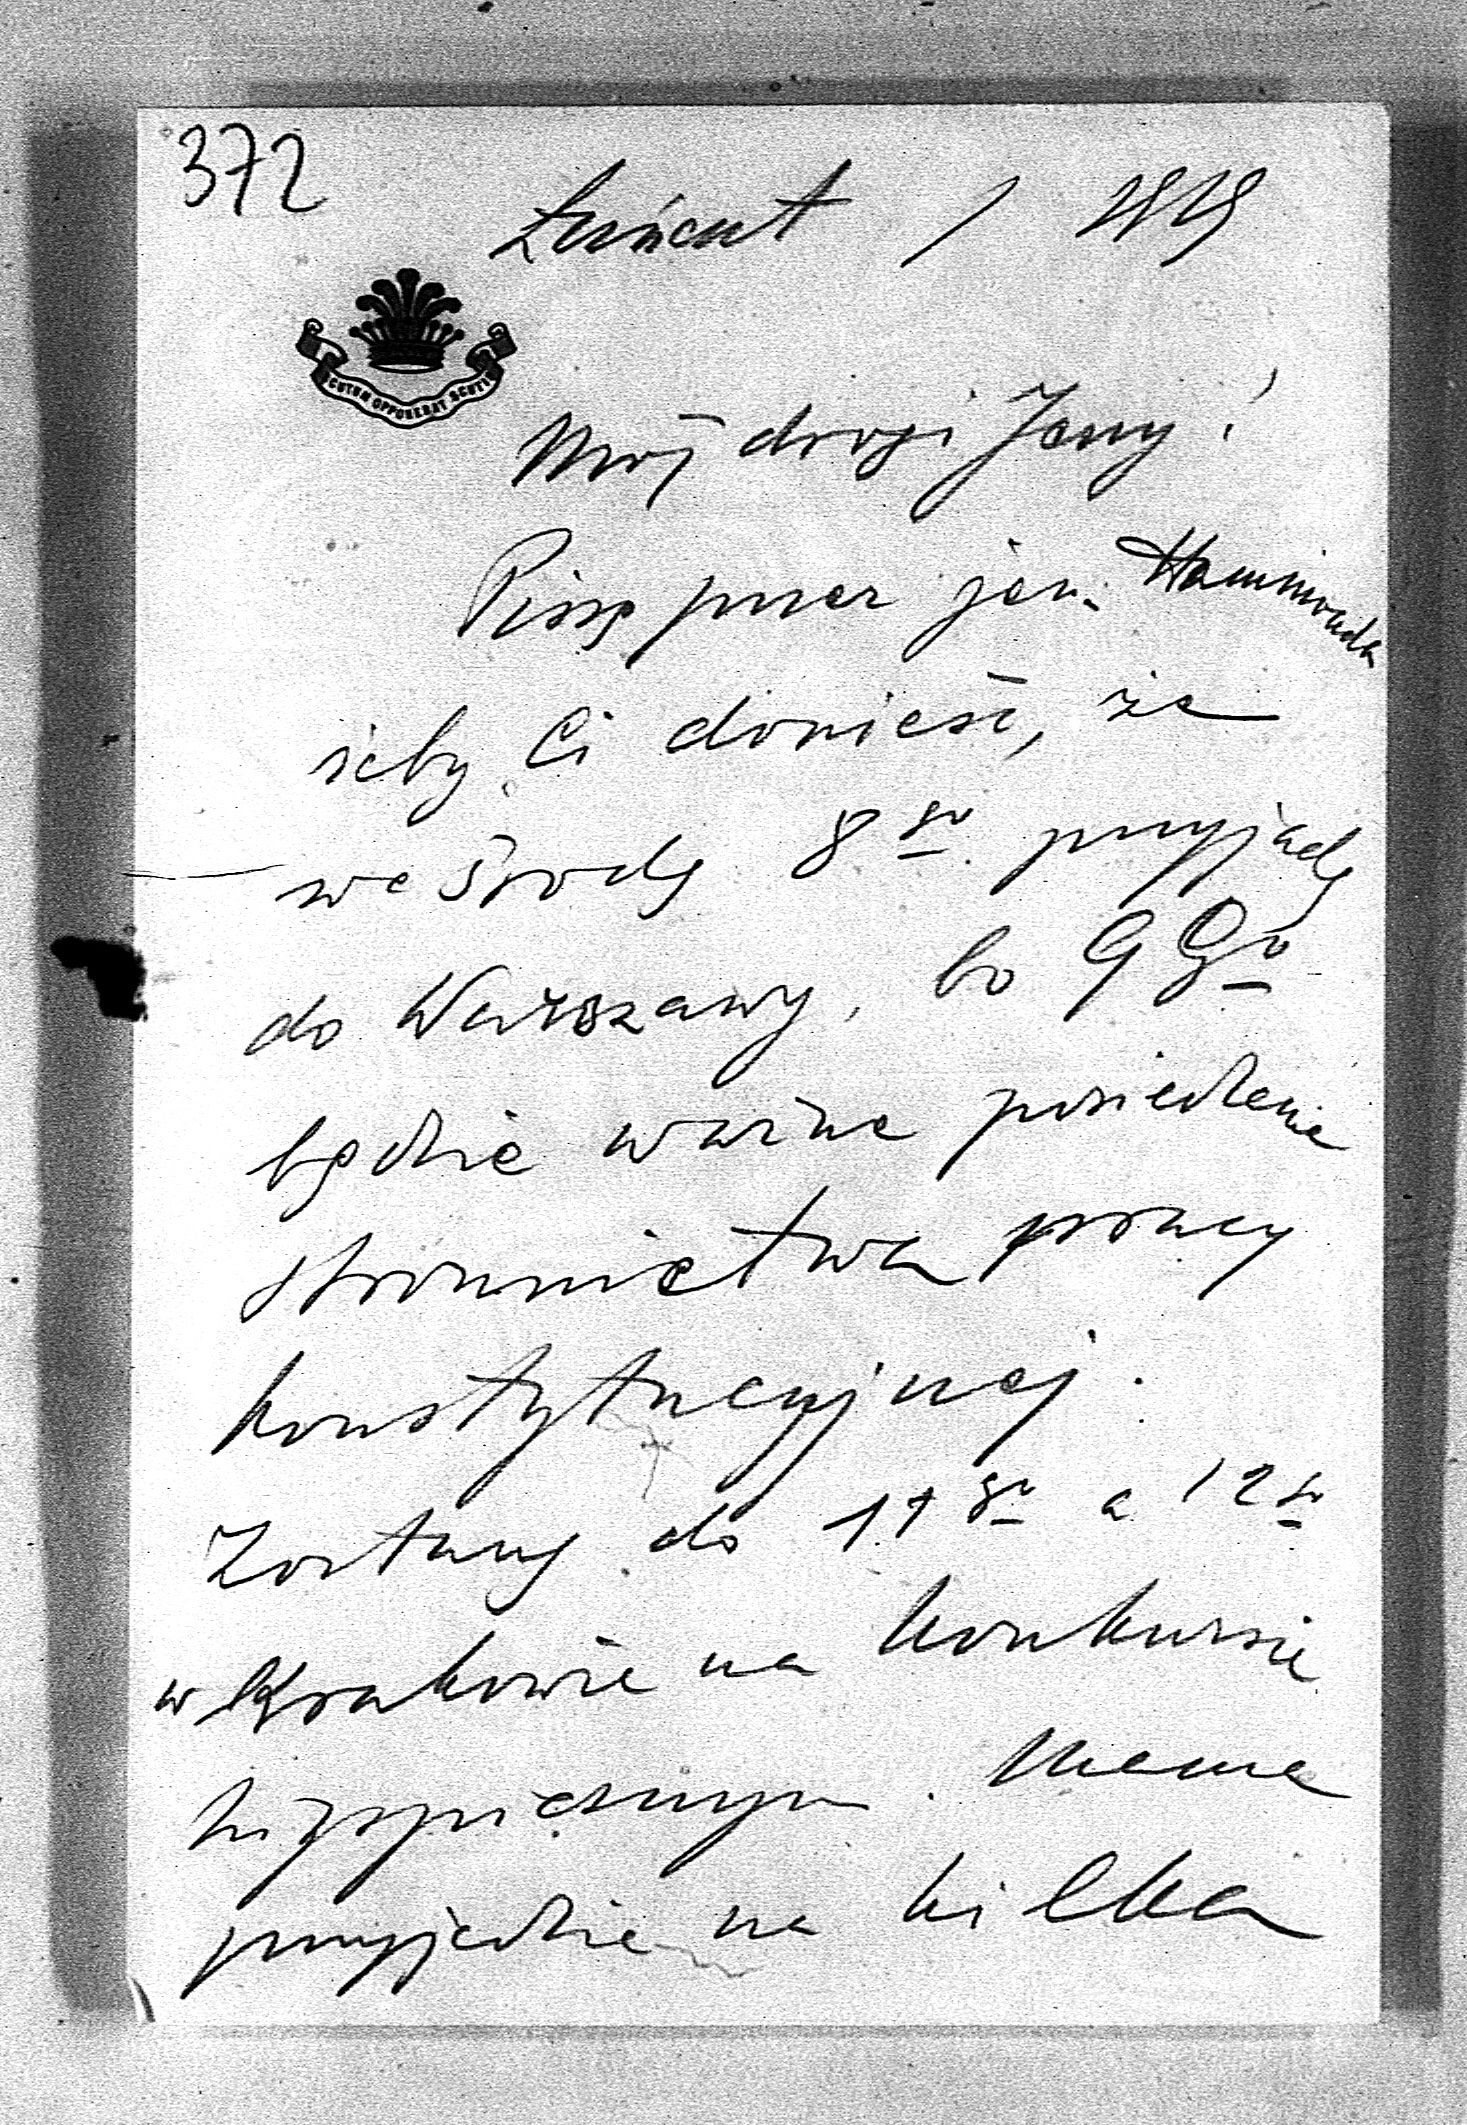 372
Łańcut / 1919
SCUTUM OPPONEBAT SCUTIS
Mój drogi Jerzy!
Piszę przez jen.
żeby Ci donieść, że
we środę 8go przyjadę
do Warszawy, bo 9go
będzie ważne posiedzenie
stronnictwa pracy
konstytucyjnej.
Zostanę do 11go a 12go
w Krakowie na konkursie
hippicznym. Mama
przyjedzie na kilka